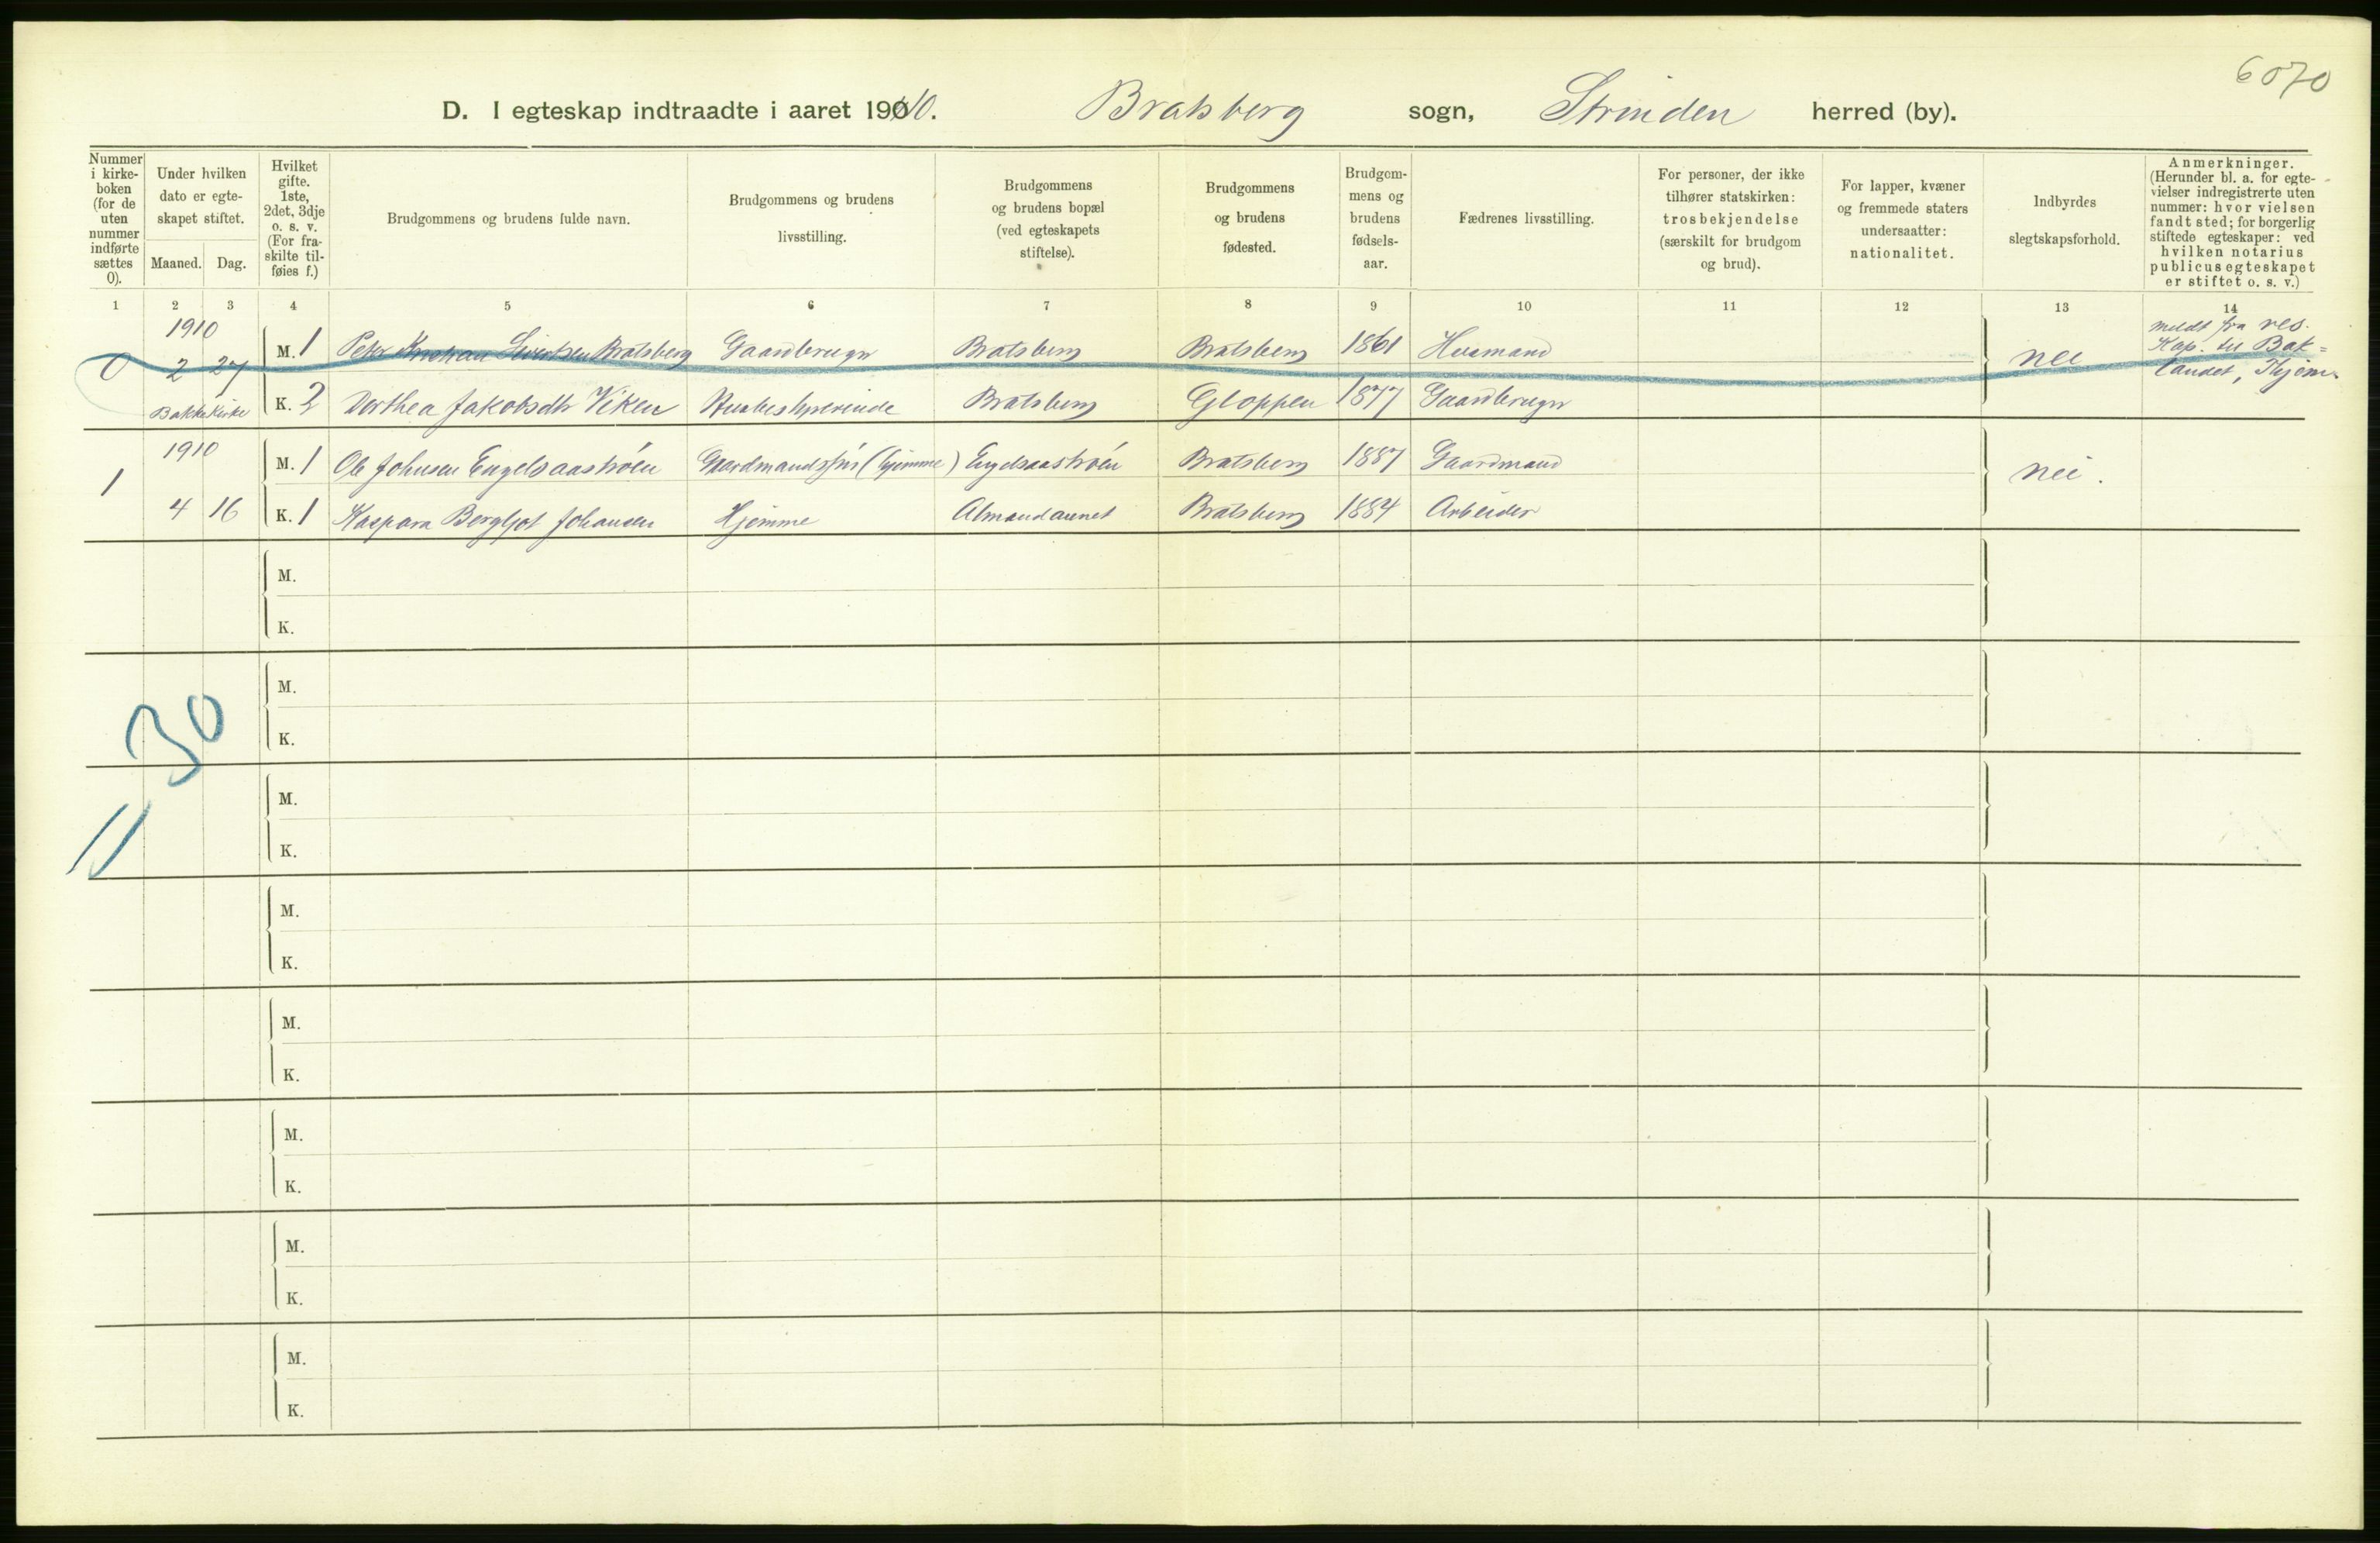 6070
D. I egteskap indtraadte i aaret 1910. Bratsberg sogn, Strinden herred (by).
Nummer i kirkeboken (for de uten nummer indførte sættes 0).
Under hvilken dato er egteskapet stiftet.
Maaned. Dag.
Hvilket gifte. 1ste, 2det, 3dje o. s. v. (For fraskilte tilføies f.)
Brudgommens og brudens fulde navn.
Brudgommens og brudens livsstilling.
Brudgommens og brudens bopæl (ved egteskapets stiftelse).
Brudgommens og brudens fødested.
Brudgommens og brudens fødselsaar.
Fædrenes livsstilling.
For personer, der ikke tilhører statskirken: trosbekjendelse (særskilt for brudgom og brud).
For lapper, kvæner og fremmede staters undersaatter: nationalitet.
Indbyrdes slegtskapsforhold.
Anmerkninger. (Herunder bl. a. for egtevielser indregistrerte uten nummer: hvor vielsen fandt sted; for borgerlig stiftede egteskaper: ved hvilken notarius publicus egteskapet er stiftet o. s. v.)
1 2 3 4 5 6 7 8 9 10 11 12 13 14
1910
0 2 27 M. 1 Peter Sivertsen Bratsberg Gaardbruger Bratsberg Bratsberg 1861 Husmand nei meldt fra res. Kap. til Baklandet, Thjem.
Bakke Kirke K. 2 Dorthea Jakobsdtr Viken Husbestyrerinde Bratsberg Gloppen 1877 Gaardbruger
1910
1 M. 1 Ole Johnsen Engelsaastrøen Gaardmandssøn (hjemme) Engelsaastrøen Bratsberg 1887 Gaardmand nei.
4 16 K. 1 Kaspara Bergljot Johansen Hjemme Almandaunet Bratsberg 1884 Arbeider
M.
K.
M.
K.
30
M.
K.
11
M.
K.
M.
K.
M.
K.
M.
K.
M.
K.